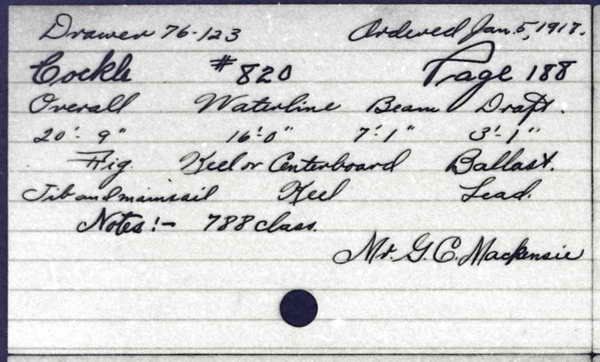 Drawer 76-123 Ordered Jan. 5, 1917.
Cockle #820 Page 188
Overall Waterline Beam Draft.
20'-9" 16'-0" 7'-1" 3'-1"
Rig Keel or Centerboard Ballast.
Jib and mainsail Keel Lead.
Notes:- 788 class.
Mr. G. C. Mackensie